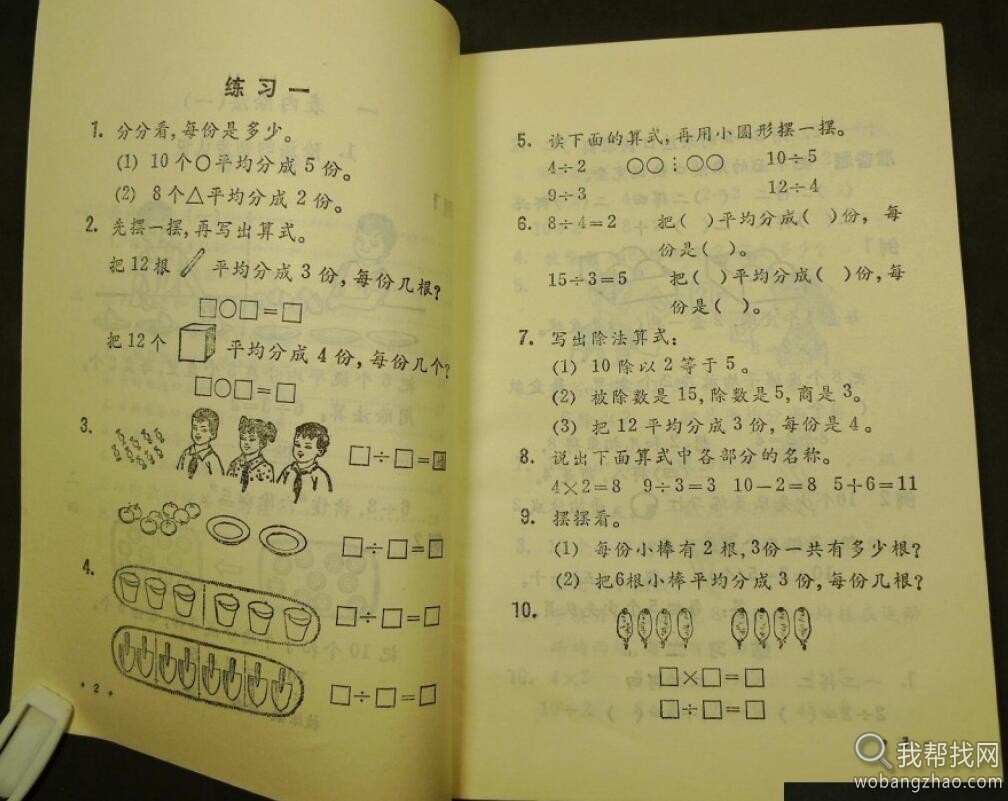 练习一
1. 分分看,每份是多少。
(1) 10个○平均分成5份。
(2) 8个△平均分成2份。
2. 先摆一摆,再写出算式。
把12根 平均分成3份,每份几根?
□○□=□
把12个 平均分成4份,每份几个?
□○□=□
3.
□÷□=□
□÷□=□
4.
□÷□=□
□÷□=□
• 2 •
5. 读下面的算式,再用小圆形摆一摆。
4÷2 ○○⋮○○ 10÷5
9÷3 12÷4
6. 8÷4=2 把( )平均分成( )份, 每
份是( )。
15÷3=5 把( )平均分成( )份,每
份是( )。
7. 写出除法算式:
(1) 10除以2等于5。
(2) 被除数是15,除数是5,商是3。
(3) 把12平均分成3份,每份是4。
8. 说出下面算式中各部分的名称。
4×2=8 9÷3=3 10-2=8 5+6=11
9. 摆摆看。
(1) 每份小棒有2根,3份一共有多少根?
(2) 把6根小棒平均分成3份,每份几根?
10.
□×□=□
□÷□=□
• 3
我帮找网
wobangzhao.com